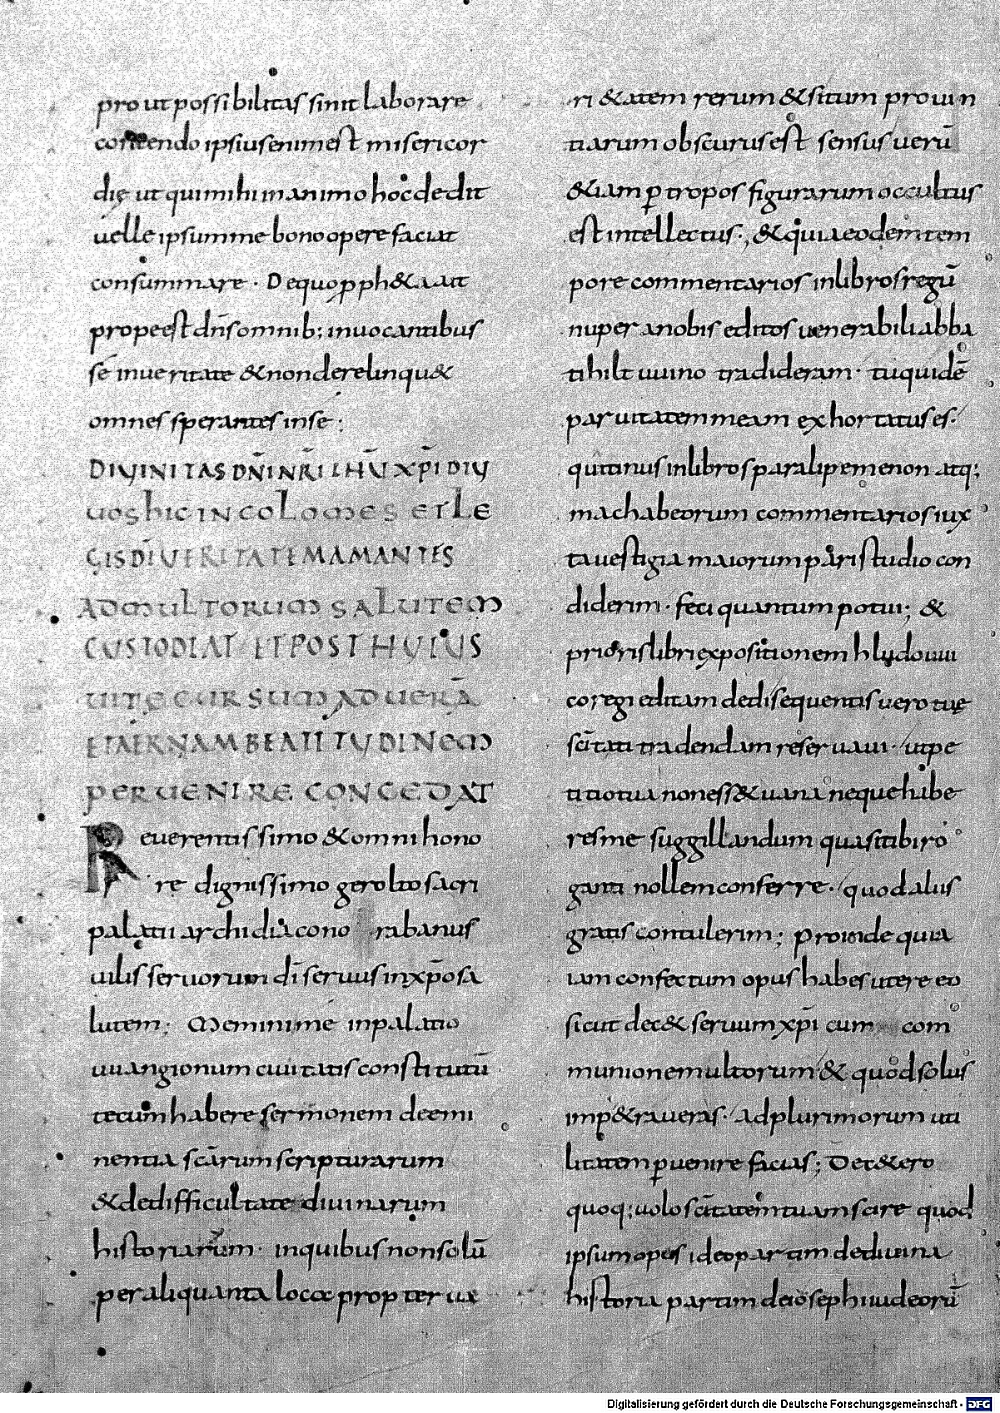 pro ut possibilitas sinit laborare
contendo ipsius enim est misericor
dię ut qui mihi in animo hoc dedit
uelle ipsum me bono opere faciat
consummare. De quo ꝓph&a ait
prope est dn̄s omnib; inuocantibus
sē in ueritate & non derelinqu&
omnes sperantes in se;
DIVINITAS DN̄I NR̄I IHŪ XP̄I DIV
UOS HIC INCOLOMES ET LE
GIS DĪ VERITATEM AMANTES
AD MULTORUM SALUTEM
CUSTODIAT ET POST HUIUS
UITĘ CURSUM AD UERĀ
ET AETERNAM BEATITUDINEM
PERUENIRE CONCEDAT
Reuerentissimo & omni hono
re dignissimo gerolto sacri
palatii archidiacono rabanus
uilis seruorum dī seruus in xp̄o sa
lutem; Memini me in palatio
uuangionum ciuitatis constitutū
tecum habere sermonem de emi
nentia scārum scripturarum
& de difficultate diuinarum
historiarum. in quibus non solū
per aliquanta loca propter ua
ri&atem rerum & situm prouin
tiarum obscurus est sensus uerū
&iam ꝑ tropos figurarum occultus
est intellectus; & quia eodem tem
pore commentarios in libros regū
nuper a nobis editos uenerabili abba
ti hiltuuino tradideram. tu quidē
paruitatem meam exhortatus es.
quatinus in libros paralipemenon atq;
machabeorum commentarios iux
ta uestigia maiorum pari studio con
diderim. feci quantum potui; &
prioris libri expositionem hludouui
co regi editam dedi sequentis uero tuę
sc̄itati tradendam reseruaui. ut pe
titio tua non ess& uana neque habe
res me suggillandum quasi tibi ro
ganti nollem conferre. quod aliis
gratis contulerim; Proinde quia
iam confectum opus habes utere eo
sicut dec& seruum xp̄i cum com
munione multorum & quod solus
imp&raueras. ad plurimorum uti
litatem ꝑuenire facias; De c&ero
quoq; uolo sc̄itatem tuam scire quod
ipsum opus ideo partim de diuina
historia partim de iosephi iudeorū